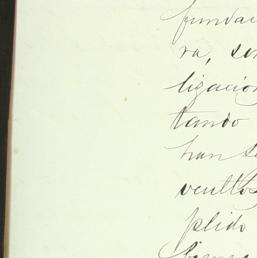 fundam
ra, son
ligacion
tando
han s
vcultos
plido